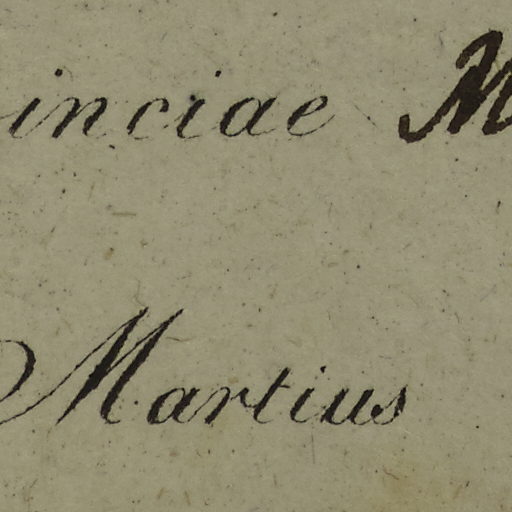 inciae M
Martius